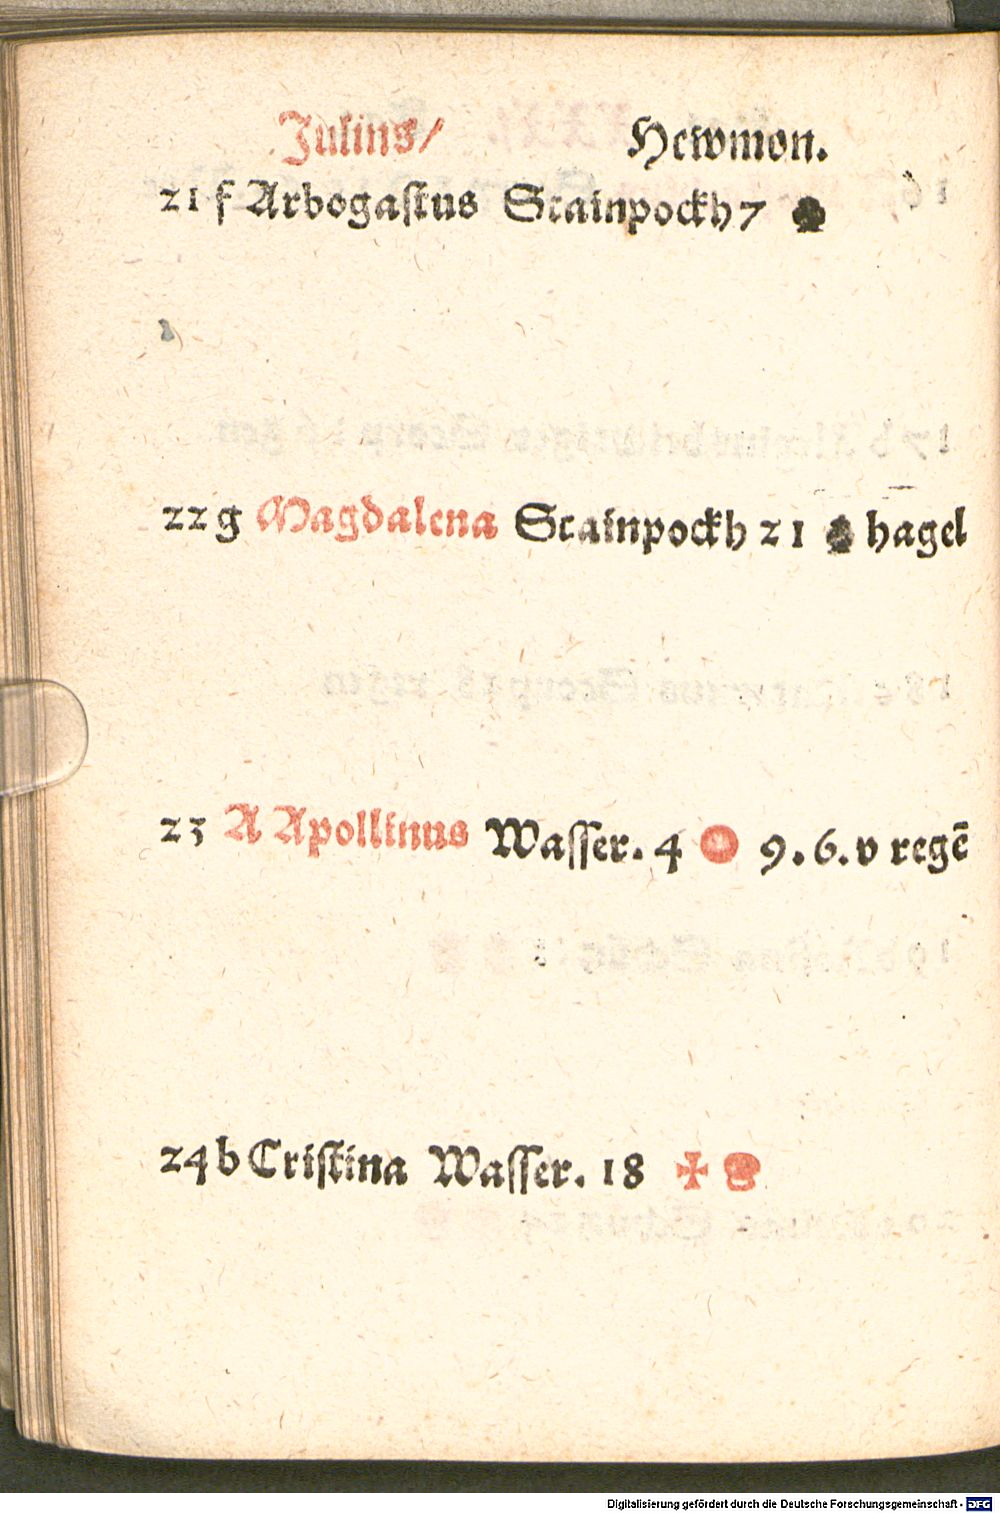 Julius/ Hewmon.
21 f Arbogastus Stainpockh 7
22 g Magdalena Stainpockh 21 hagel
23 A Apollinus Wasser. 4 9. 6. v regē
24 b Cristina Wasser. 18
Digitalisierung gefördert durch die Deutsche Forschungsgemeinschaft - DFG